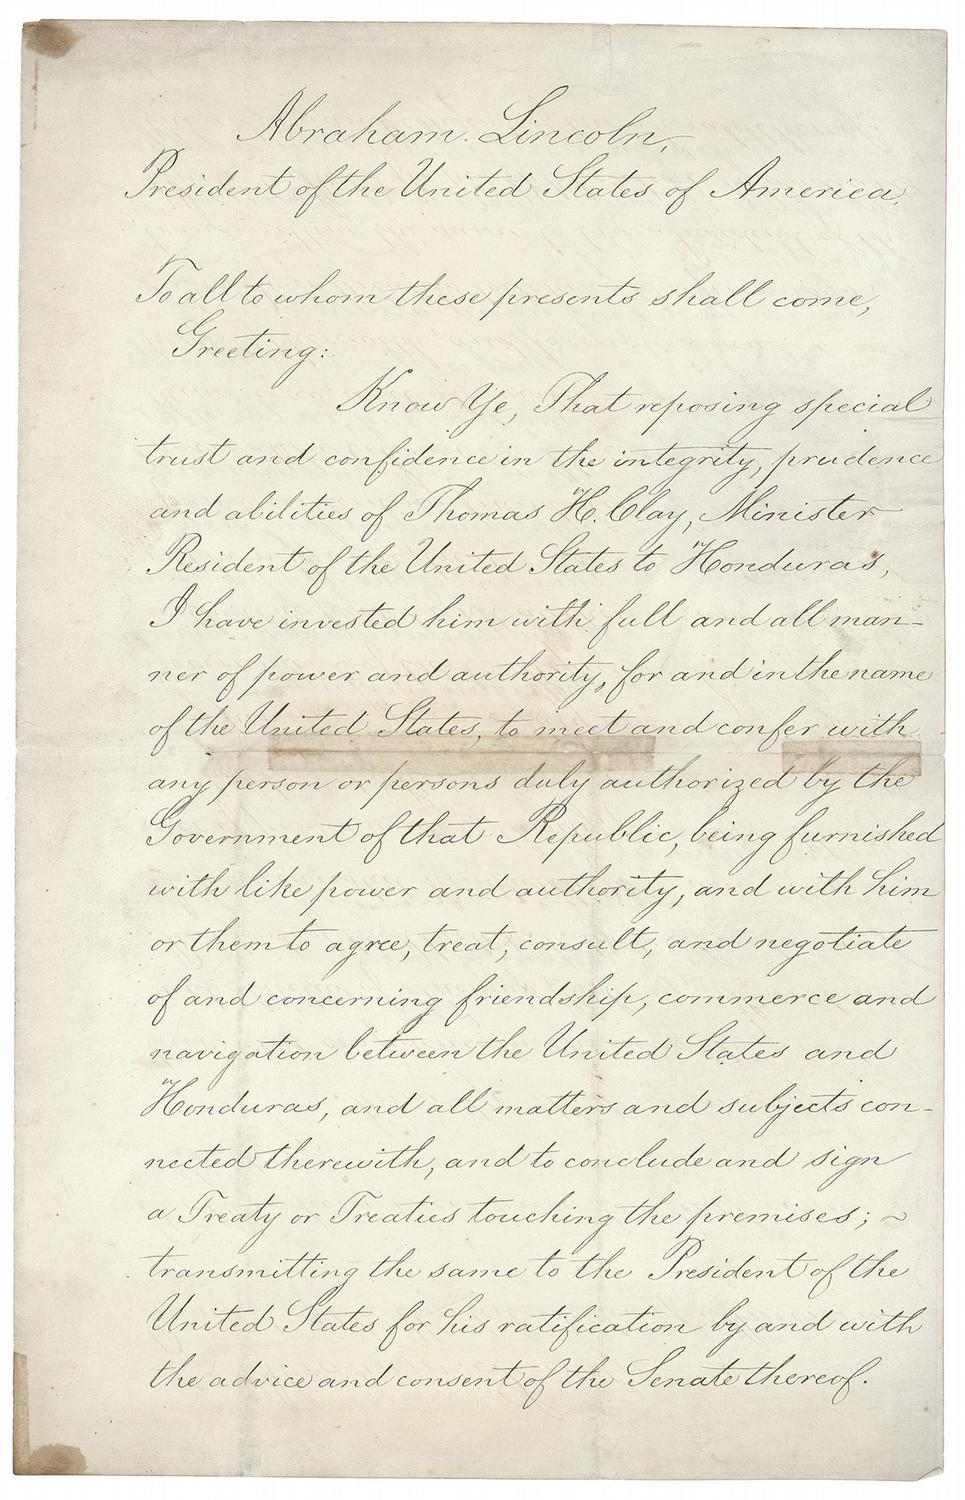 Abraham Lincoln,
President of the United States of America,
To all to whom these presents shall come,
Greeting:
Know Ye, That reposing special
trust and confidence in the integrity, prudence
and abilities of Thomas H. Clay, Minister
Resident of the United States to Honduras,
I have invested him with full and all man-
ner of power and authority, for and in the name
of the United States, to meet and confer with
any person or persons duly authorized by the
Government of that Republic, being furnished
with like power and authority, and with him
or them to agree, treat, consult, and negotiate
of and concerning friendship, commerce and
navigation between the United States and
Honduras, and all matters and subjects con-
nected therewith, and to conclude and sign
a Treaty or Treaties touching the premises; ~
transmitting the same to the President of the
United States for his ratification by and with
the advice and consent of the Senate thereof.